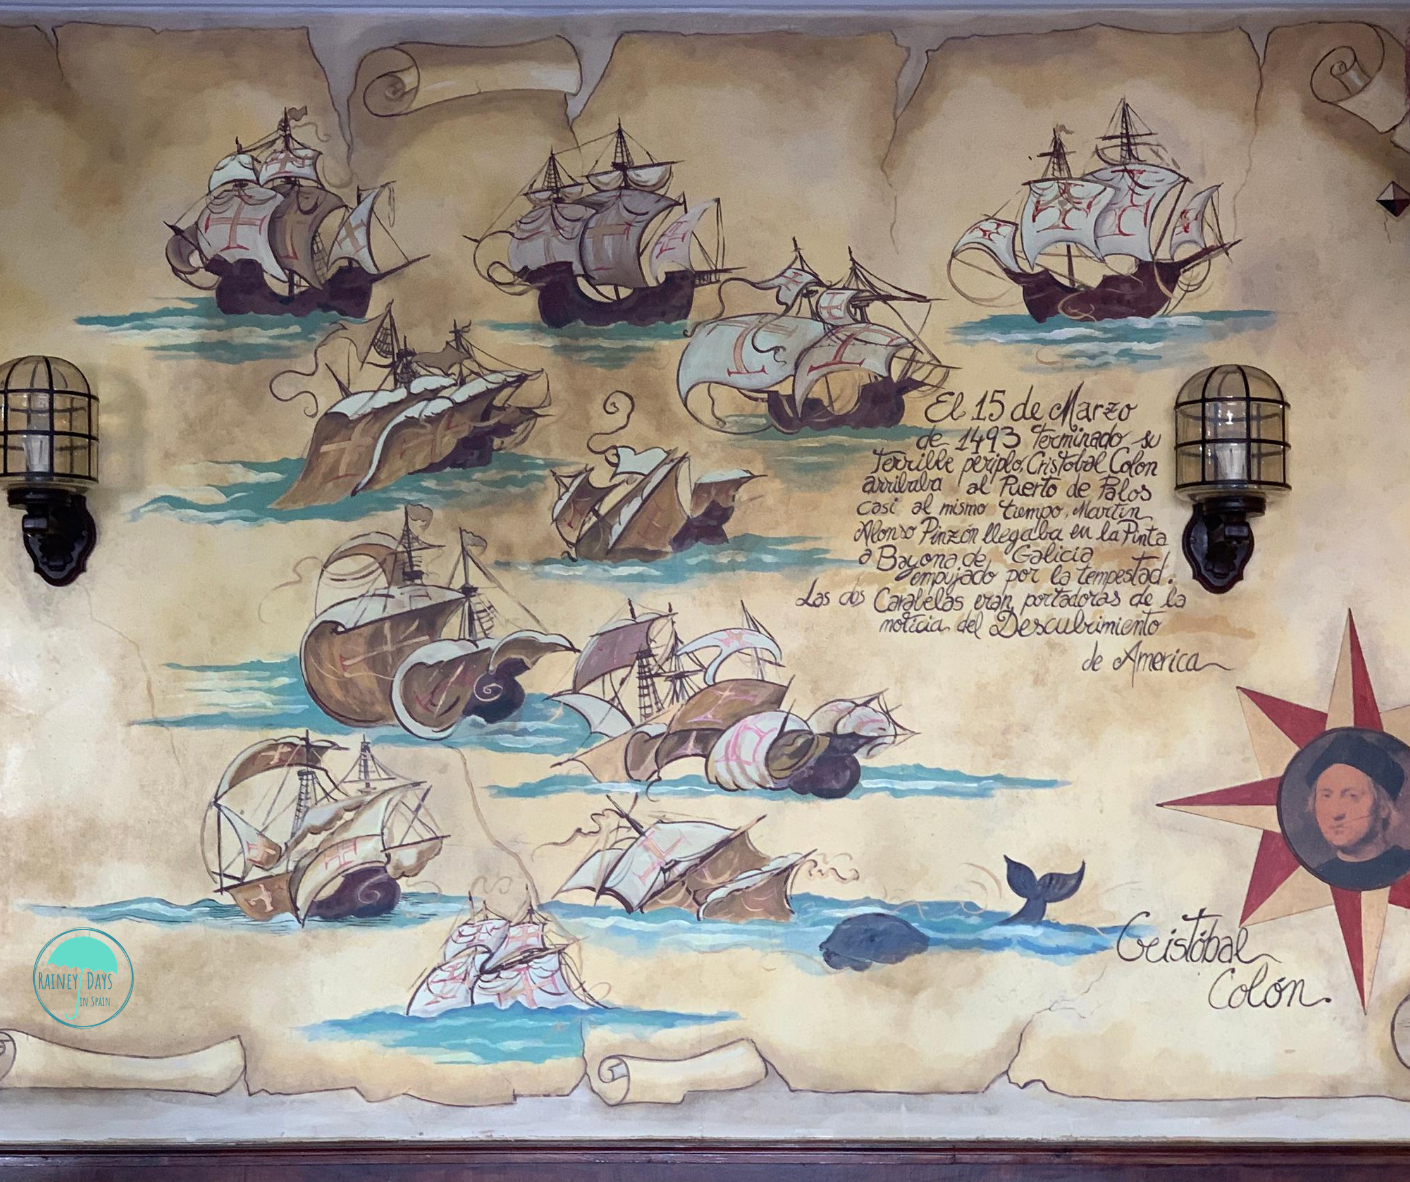 El 15 de Marzo
de 1493 terminado su
terrible periplo, Cristobal Colon
arribaba al Puerto de Palos
casi al mismo tiempo, Martin
Alonso Pinzón llegaba en la Pinta
a Bayona de Galicia
empujado por la tempestad.
Las dos Carabelas eran portadoras de la
noticia del Descubrimiento
de America
Cristóbal
Colón.
RAINEY DAYS
IN SPAIN